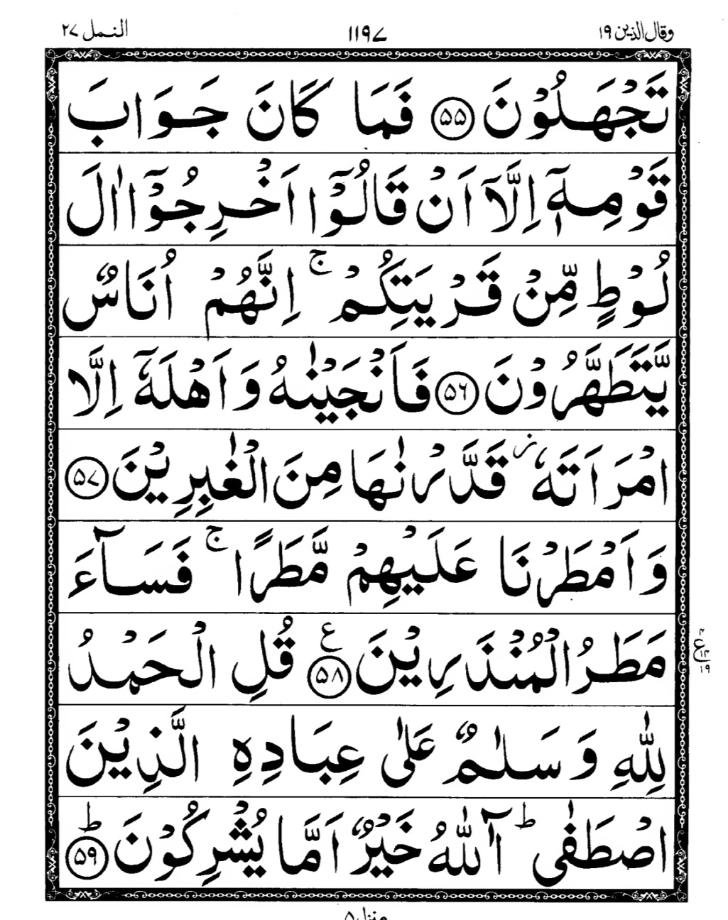 وقال الذین ۱۹ ۱۱۹۷ النمل ۲۷
تَجْهَلُوْنَ ۝۵۵ فَمَا كَانَ جَوَابَ
قَوْمِهٖۤ اِلَّاۤ اَنْ قَالُوْۤا اَخْرِجُوْۤا اٰلَ
لُوْطٍ مِّنْ قَرْیَتِكُمْ ۚ اِنَّهُمْ اُنَاسٌ
یَّتَطَهَّرُوْنَ ۝۵۶ فَاَنْجَیْنٰهُ وَ اَهْلَهٗۤ اِلَّا
امْرَاَتَهٗ ؗ قَدَّرْنٰهَا مِنَ الْغٰبِرِیْنَ ۝۵۷
وَ اَمْطَرْنَا عَلَیْهِمْ مَّطَرًا ۚ فَسَآءَ
مَطَرُ الْمُنْذَرِیْنَ ۝۵۸ ع قُلِ الْحَمْدُ
لِلّٰهِ وَ سَلٰمٌ عَلٰی عِبَادِهِ الَّذِیْنَ
اصْطَفٰی ؕ آٰللّٰهُ خَیْرٌ اَمَّا یُشْرِكُوْنَ ؕ۝۵۹
منزل ۵